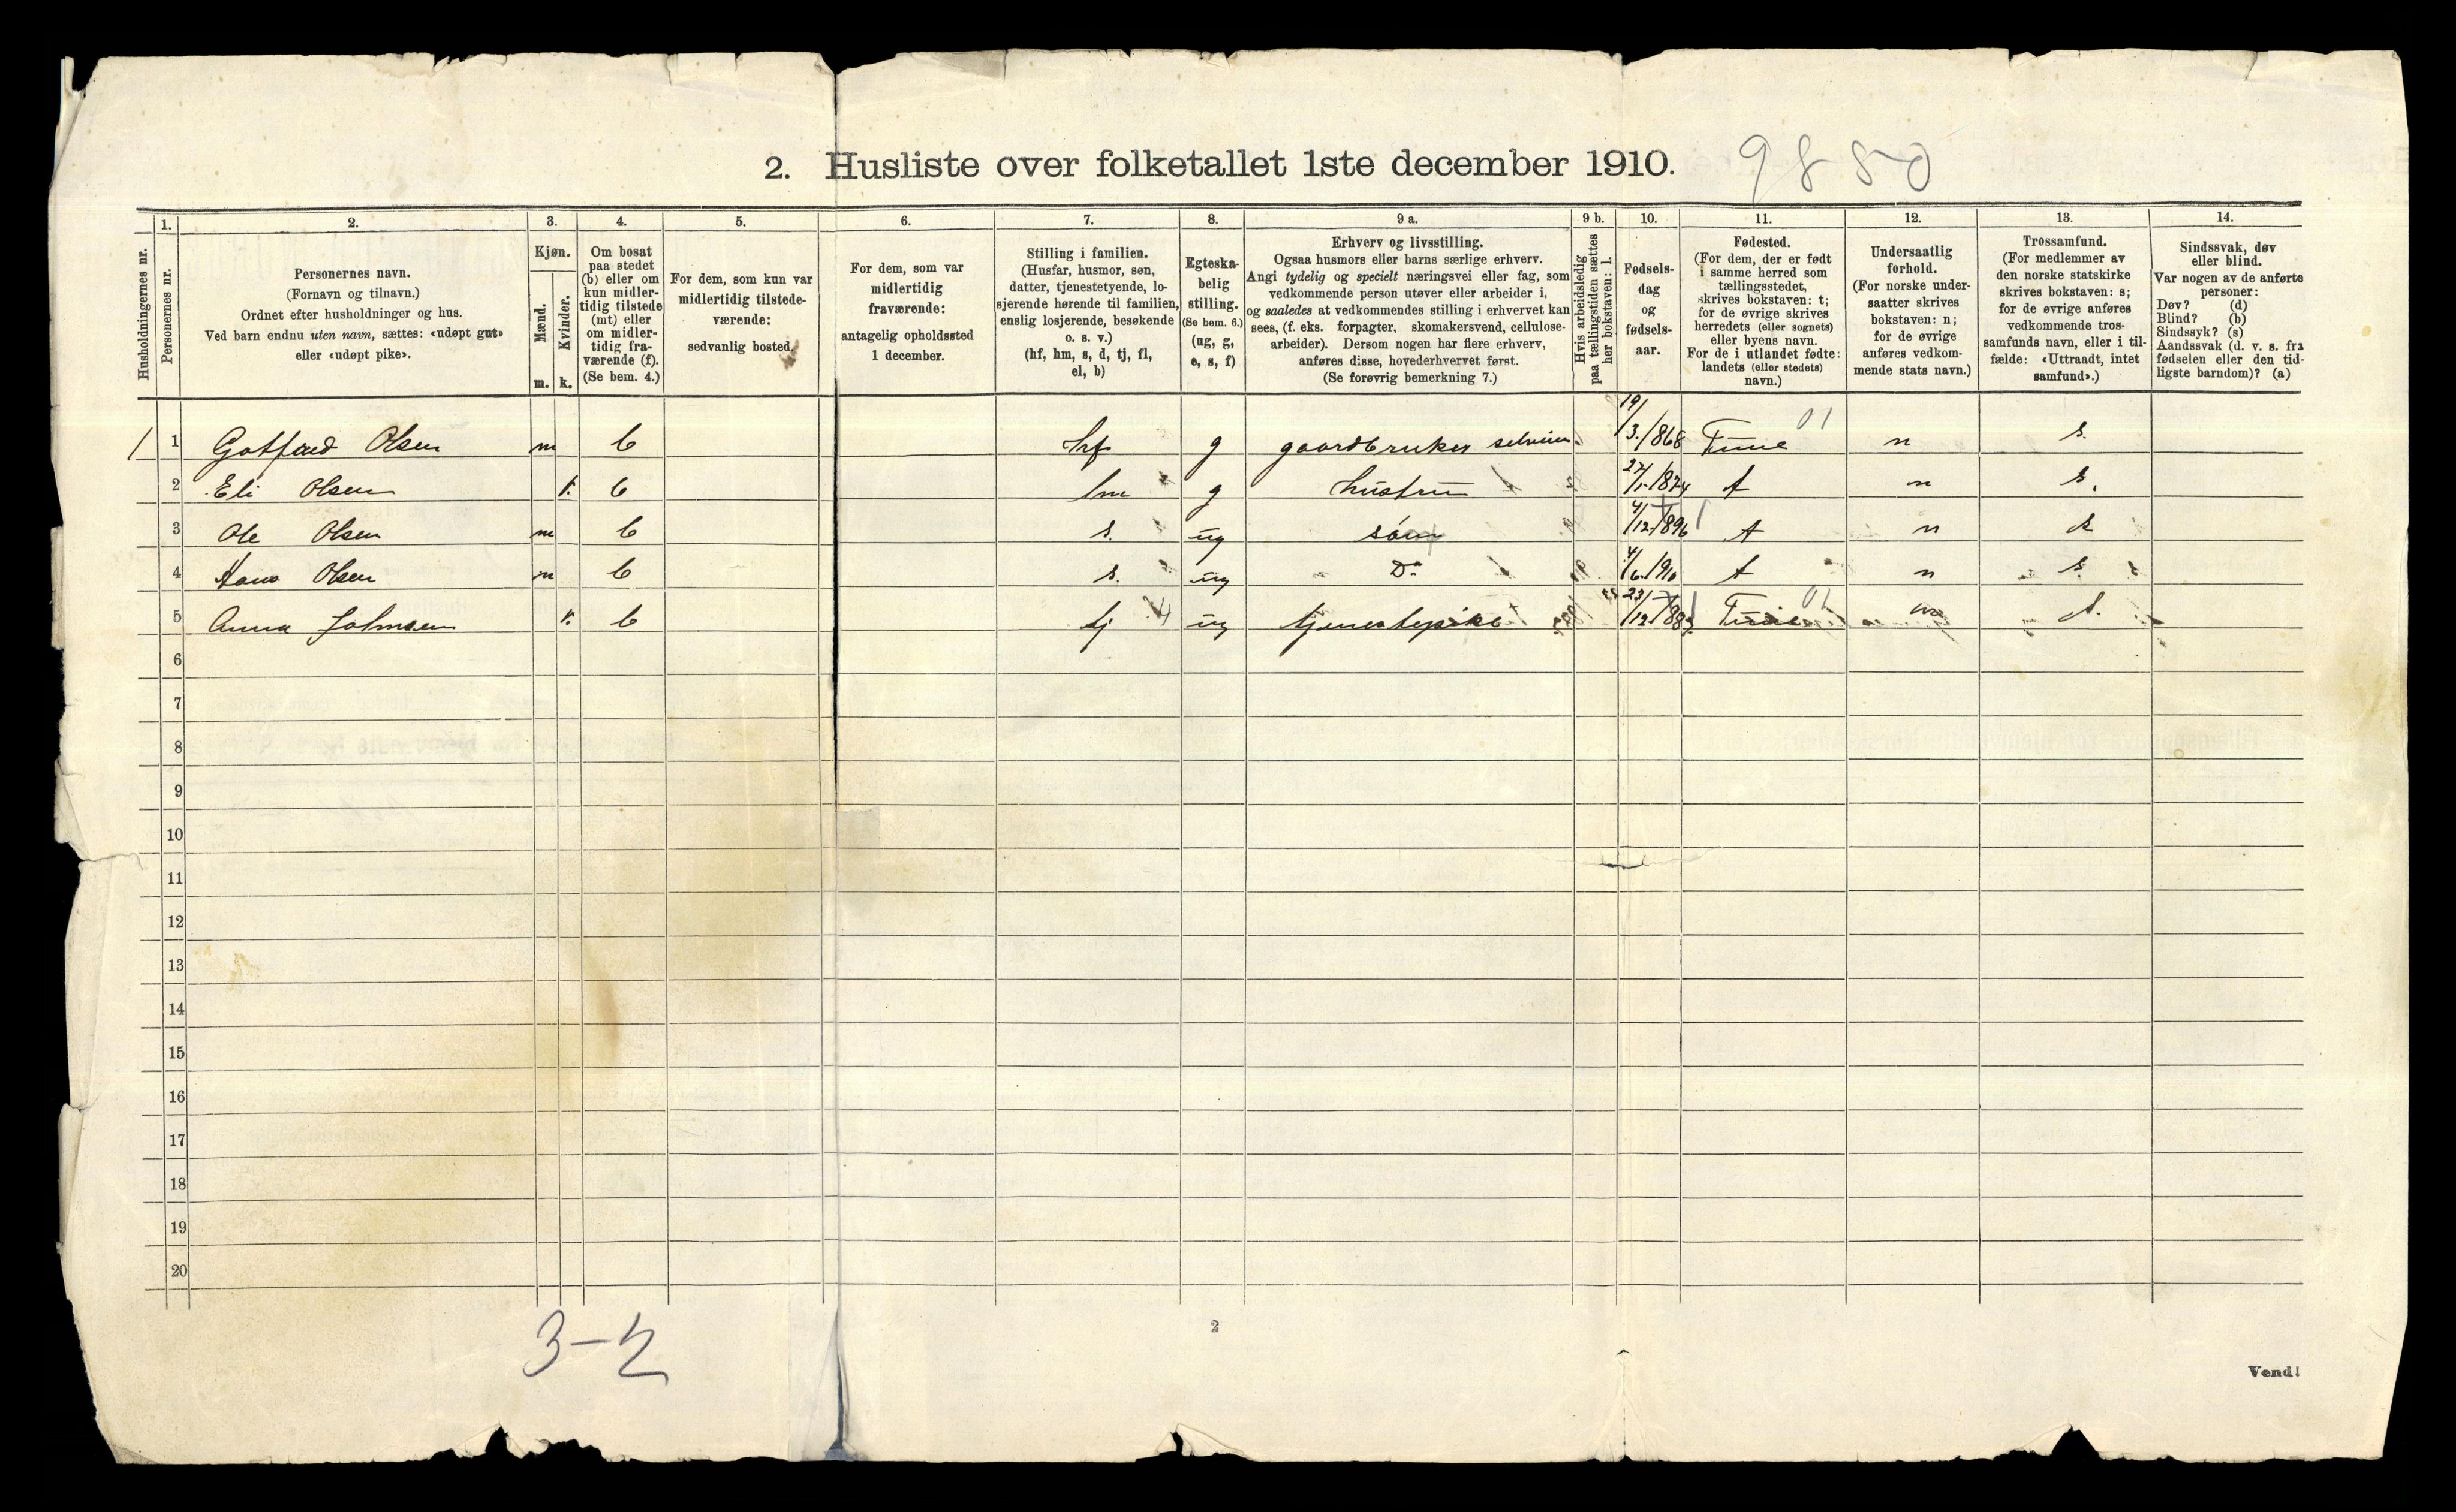 2. Husliste over folketallet 1ste december 1910. 9880
Husholdningernes nr.
1. Personernes nr.
2. Personernes navn.
(Fornavn og tilnavn.)
Ordnet efter husholdninger og hus.
Ved barn endnu uten navn, sættes: «udøpt gut»
eller «udøpt pike».
3. Kjøn.
Mænd. m.
Kvinder. k.
4. Om bosat
paa stedet
(b) eller om
kun midler-
tidig tilstede
(mt) eller
om midler-
tidig fra-
værende (f).
(Se bem. 4.)
5. For dem, som kun var
midlertidig tilstede-
værende:
sedvanlig bosted.
6. For dem, som var
midlertidig
fraværende:
antagelig opholdssted
1 december.
7. Stilling i familien.
(Husfar, husmor, søn,
datter, tjenestetyende, lo-
sjerende hørende til familien,
enslig losjerende, besøkende
o. s. v.)
(hf, hm, s, d, tj, fl,
el, b)
8. Egteska-
belig
stilling.
(Se bem. 6.)
(ug, g,
e, s, f)
9 a. Erhverv og livsstilling.
Ogsaa husmors eller barns særlige erhverv.
Angi tydelig og specielt næringsvei eller fag, som
vedkommende person utøver eller arbeider i,
og saaledes at vedkommendes stilling i erhvervet kan
sees, (f. eks. forpagter, skomakersvend, cellulose-
arbeider). Dersom nogen har flere erhverv,
anføres disse, hovederhvervet først.
(Se forøvrig bemerkning 7.)
9 b. Hvis arbeidsledig
paa tællingstiden sættes
her bokstaven: l.
10. Fødsels-
dag
og
fødsels-
aar.
11. Fødested.
(For dem, der er født
i samme herred som
tællingsstedet,
skrives bokstaven: t;
for de øvrige skrives
herredets (eller sognets)
eller byens navn.
For de i utlandet fødte:
landets (eller stedets)
navn.)
12. Undersaatlig
forhold.
(For norske under-
saatter skrives
bokstaven: n;
for de øvrige
anføres vedkom-
mende stats navn.)
13. Trossamfund.
(For medlemmer av
den norske statskirke
skrives bokstaven: s;
for de øvrige anføres
vedkommende tros-
samfunds navn, eller i til-
fælde: «Uttraadt, intet
samfund».)
14. Sindssvak, døv
eller blind.
Var nogen av de anførte
personer:
Døv? (d)
Blind? (b)
Sindssyk? (s)
Aandssvak (d. v. s. fra
fødselen eller den tid-
ligste barndom)? (a)
1 1 Gotfred Olsen m b hf g gaardbruker selveier 19/3./868 Tune 01 n s.
2 Eli Olsen k. b hm g hustru 27/1./874 t n s.
3 Ole Olsen m b s. ug søn 4/12./896 t n s
4 Hans Olsen m b s. ug Do 4/6./910 t n s.
5 Anna Johnsen k. b tj ug tjenestepike 23/12./883 Tune 01 n s.
6
7
8
9
10
11
12
13
14
15
16
17
18
19
20
3-2
2
Vend!